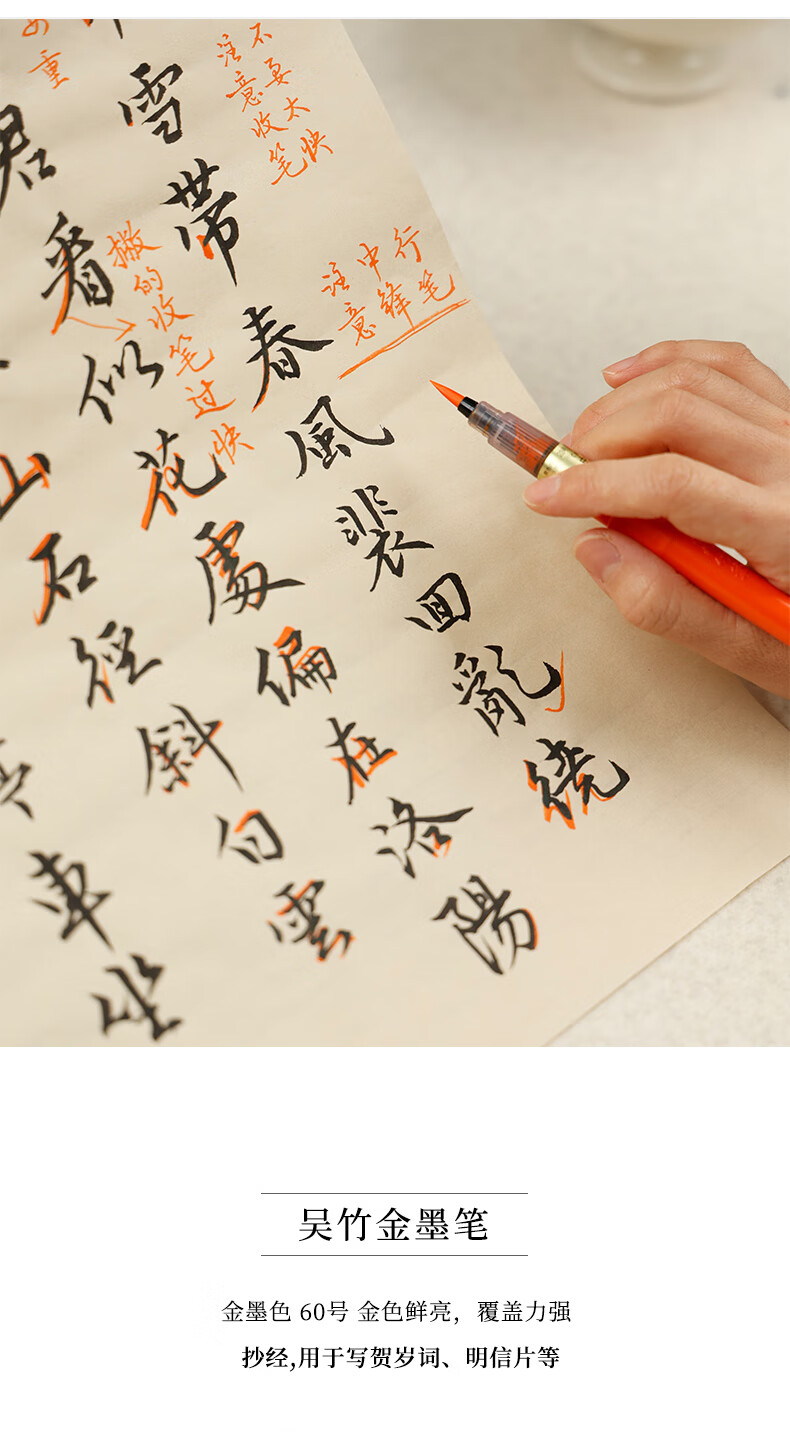 重
注意收笔
不要太快
注意
中锋
行笔
撇的收笔过快
雪帶春風裴回亂繞
君看似花處偏在洛陽
山石徑斜白雲
車坐
吴竹金墨笔
金墨色 60号 金色鲜亮，覆盖力强
抄经,用于写贺岁词、明信片等